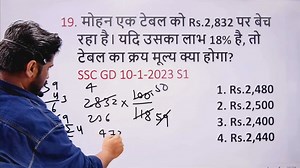 19. मोहन एक टेबल को Rs.2,832 पर बेच
रहा है। यदि उसका लाभ 18% है, तो
टेबल का क्रय मूल्य क्या होगा?
SSC GD 10-1-2023 S1
1. Rs.2,480
2. Rs.2,500
3. Rs.2,400
4. Rs.2,440
4
50
2832 × 100
118 59
236
472